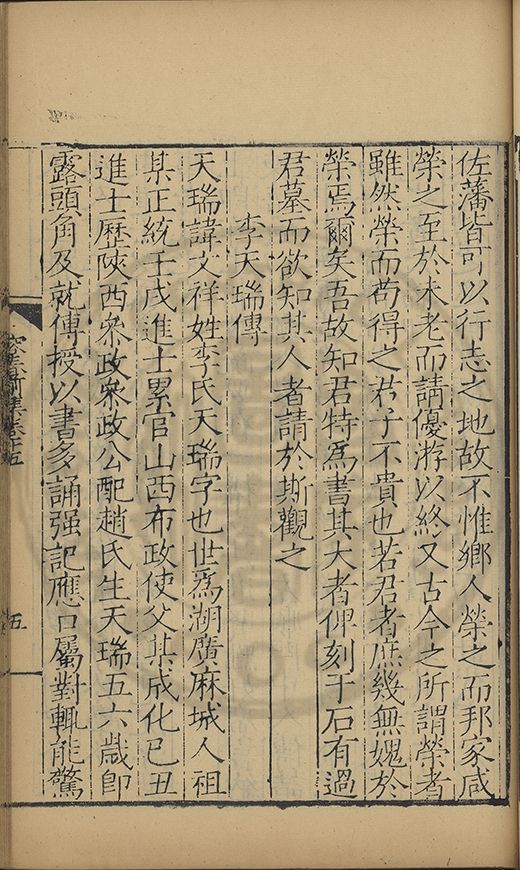 佐藩皆可以行志之地故不惟鄉人榮之而邦家咸
榮之至於未老而請優游以終又古今之所謂榮者
雖然榮而苟得之君子不貴也若君者庶幾無媿於
榮焉爾矣吾故知君特為書其大者俾刻于石有過
君墓而欲知其人者請於斯觀之
李天瑞傳
天瑞諱文祥姓李氏天瑞字也世爲湖廣麻城人祖
某正統壬戌進士累官山西布政使父某成化己丑
進士歷陝西叅政叅政公配趙氏生天瑞五六歲即
露頭角及就傅授以書多誦强記應口屬對輒能驚
五